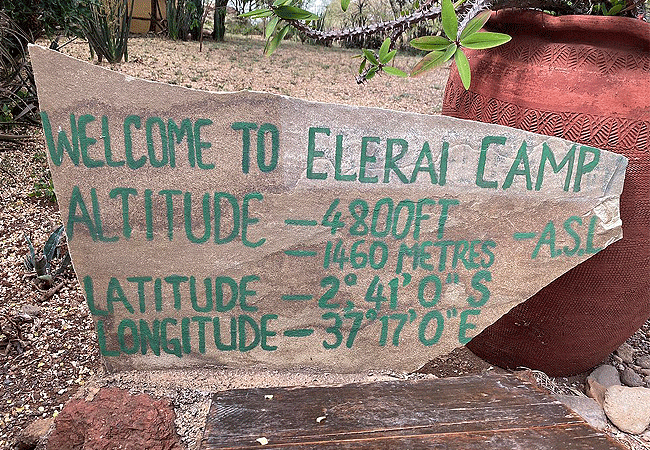 WELCOME TO ELERAI CAMP
ALTITUDE – 4800FT
– 1460 METRES – A.S.L
LATITUDE – 2°41'0"S
LONGITUDE – 37°17'0"E